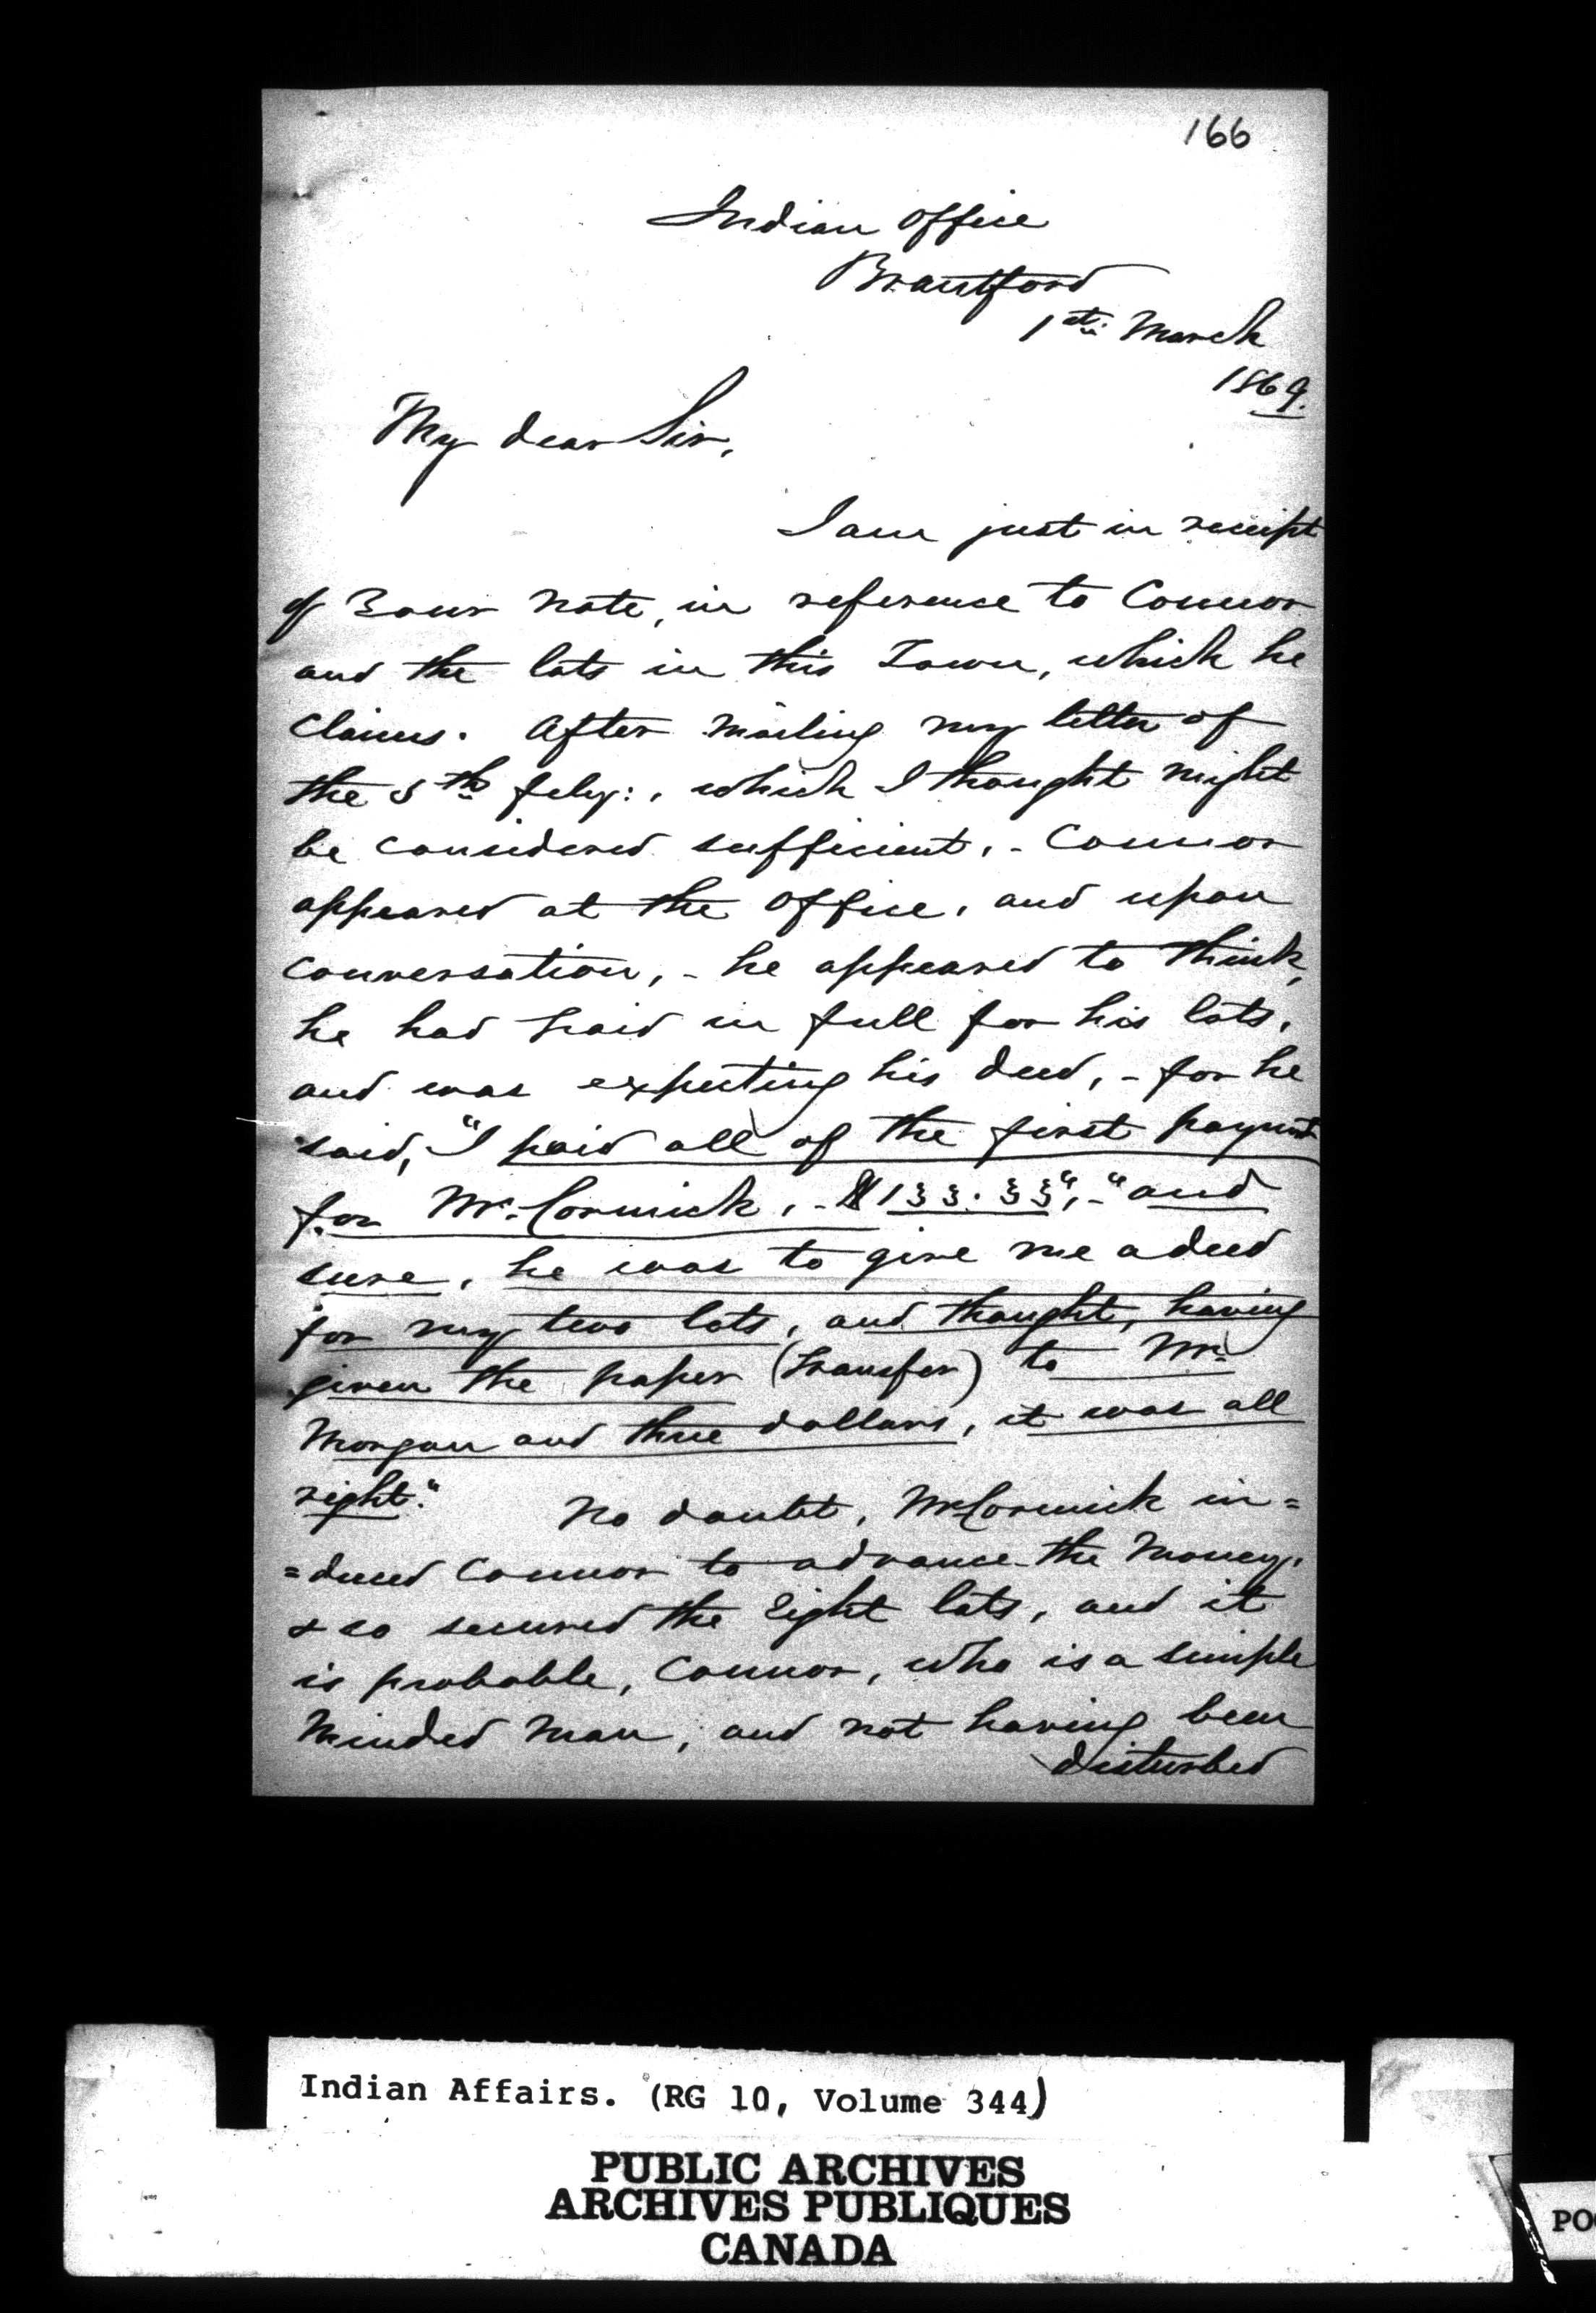 166
Indian Office
Brantford
1st: March
1869.
My dear Sir,
I am just in receipt
of Your note, in reference to Connor
and the lots in this Town, which he
Claims. After mailing my letter of
the 5th feby:, which I thought might
be considered sufficient, - Connor
appeared at the Office, and upon
conversation, - he appeared to think,
he had paid in full for his lots,
and was expecting his deed, - for he
said, "I paid all of the first paymt
for McCormick, - $133.33", - "and
sure, he was to give me a deed
for my two lots, and thought, having
given the paper (transfer) to Mr.
Morgan and three dollars, it was all
right."   No doubt, McCormick in=
=duced Connor to advance the Money,
& so secured the Eight lots, and it
is probable, Connor, who is a simple
Minded Man, and not having been
disturbed
Indian Affairs. (RG 10, Volume 344)
PUBLIC ARCHIVES
ARCHIVES PUBLIQUES
CANADA